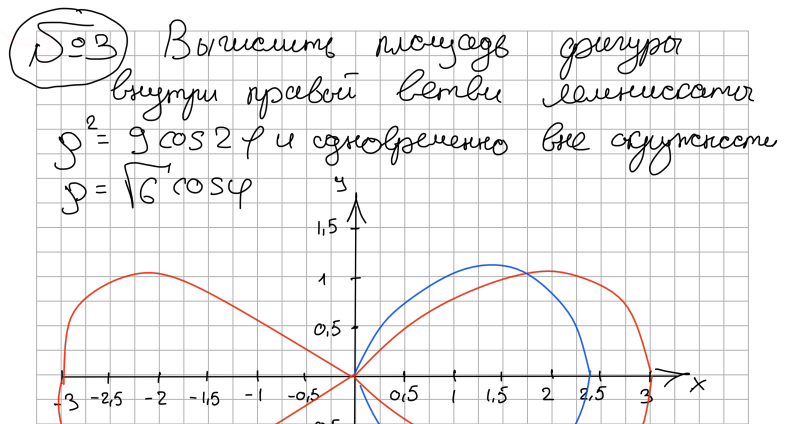 №3 Вычислить площадь фигуры
внутри правой ветви лемнискаты
ρ² = 9 cos 2φ и одновременно вне окружности
ρ = √6 cos φ
y
1,5
1
0,5
-3 -2,5 -2 -1,5 -1 -0,5 0 0,5 1 1,5 2 2,5 3 x
-0,5